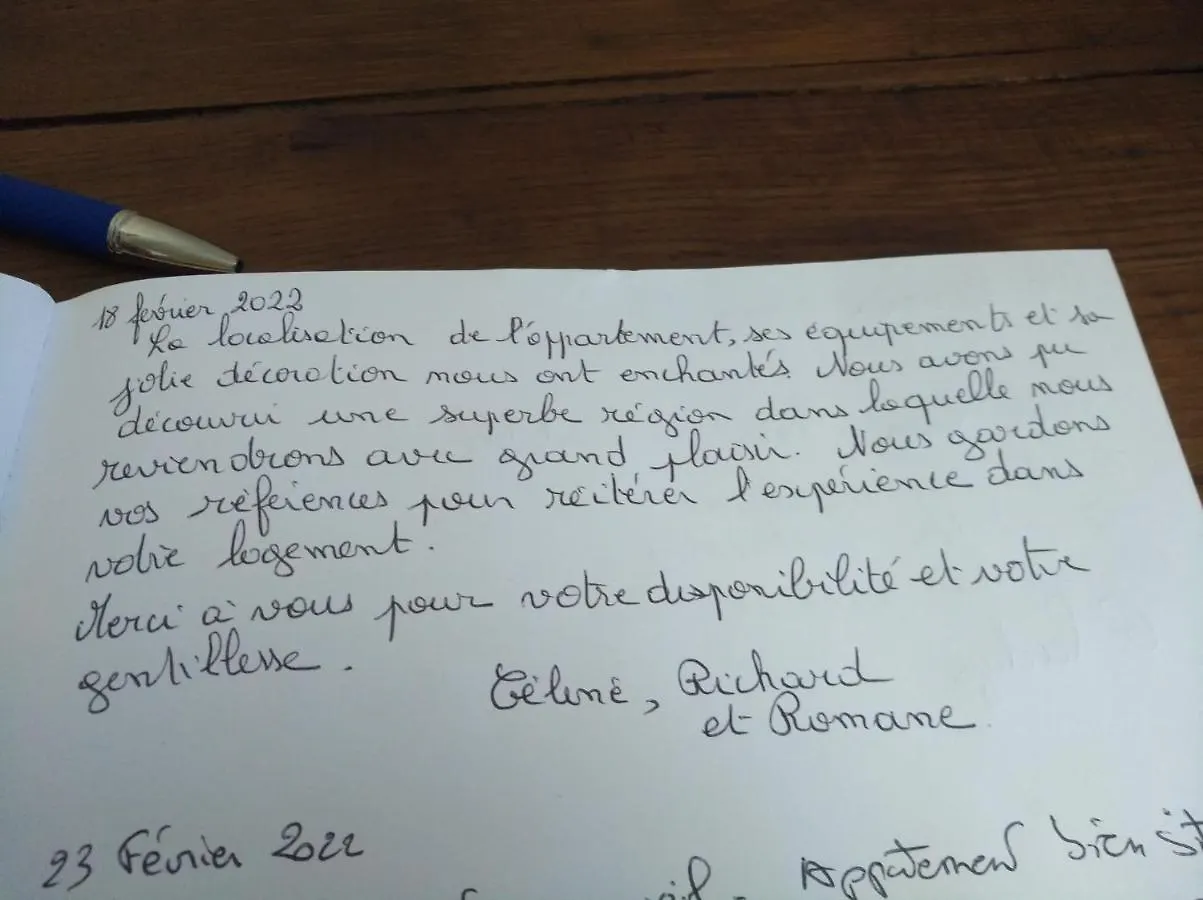 18 février 2022
La localisation de l'appartement, ses équipements et sa
jolie décoration nous ont enchantés. Nous avons pu
découvrir une superbe région dans laquelle nous
reviendrons avec grand plaisir. Nous gardons
vos références pour réitérer l'expérience dans
votre logement.
Merci à vous pour votre disponibilité et votre
gentillesse.
Céline, Richard
et Romane.
23 Février 2022
Appatement bien sit